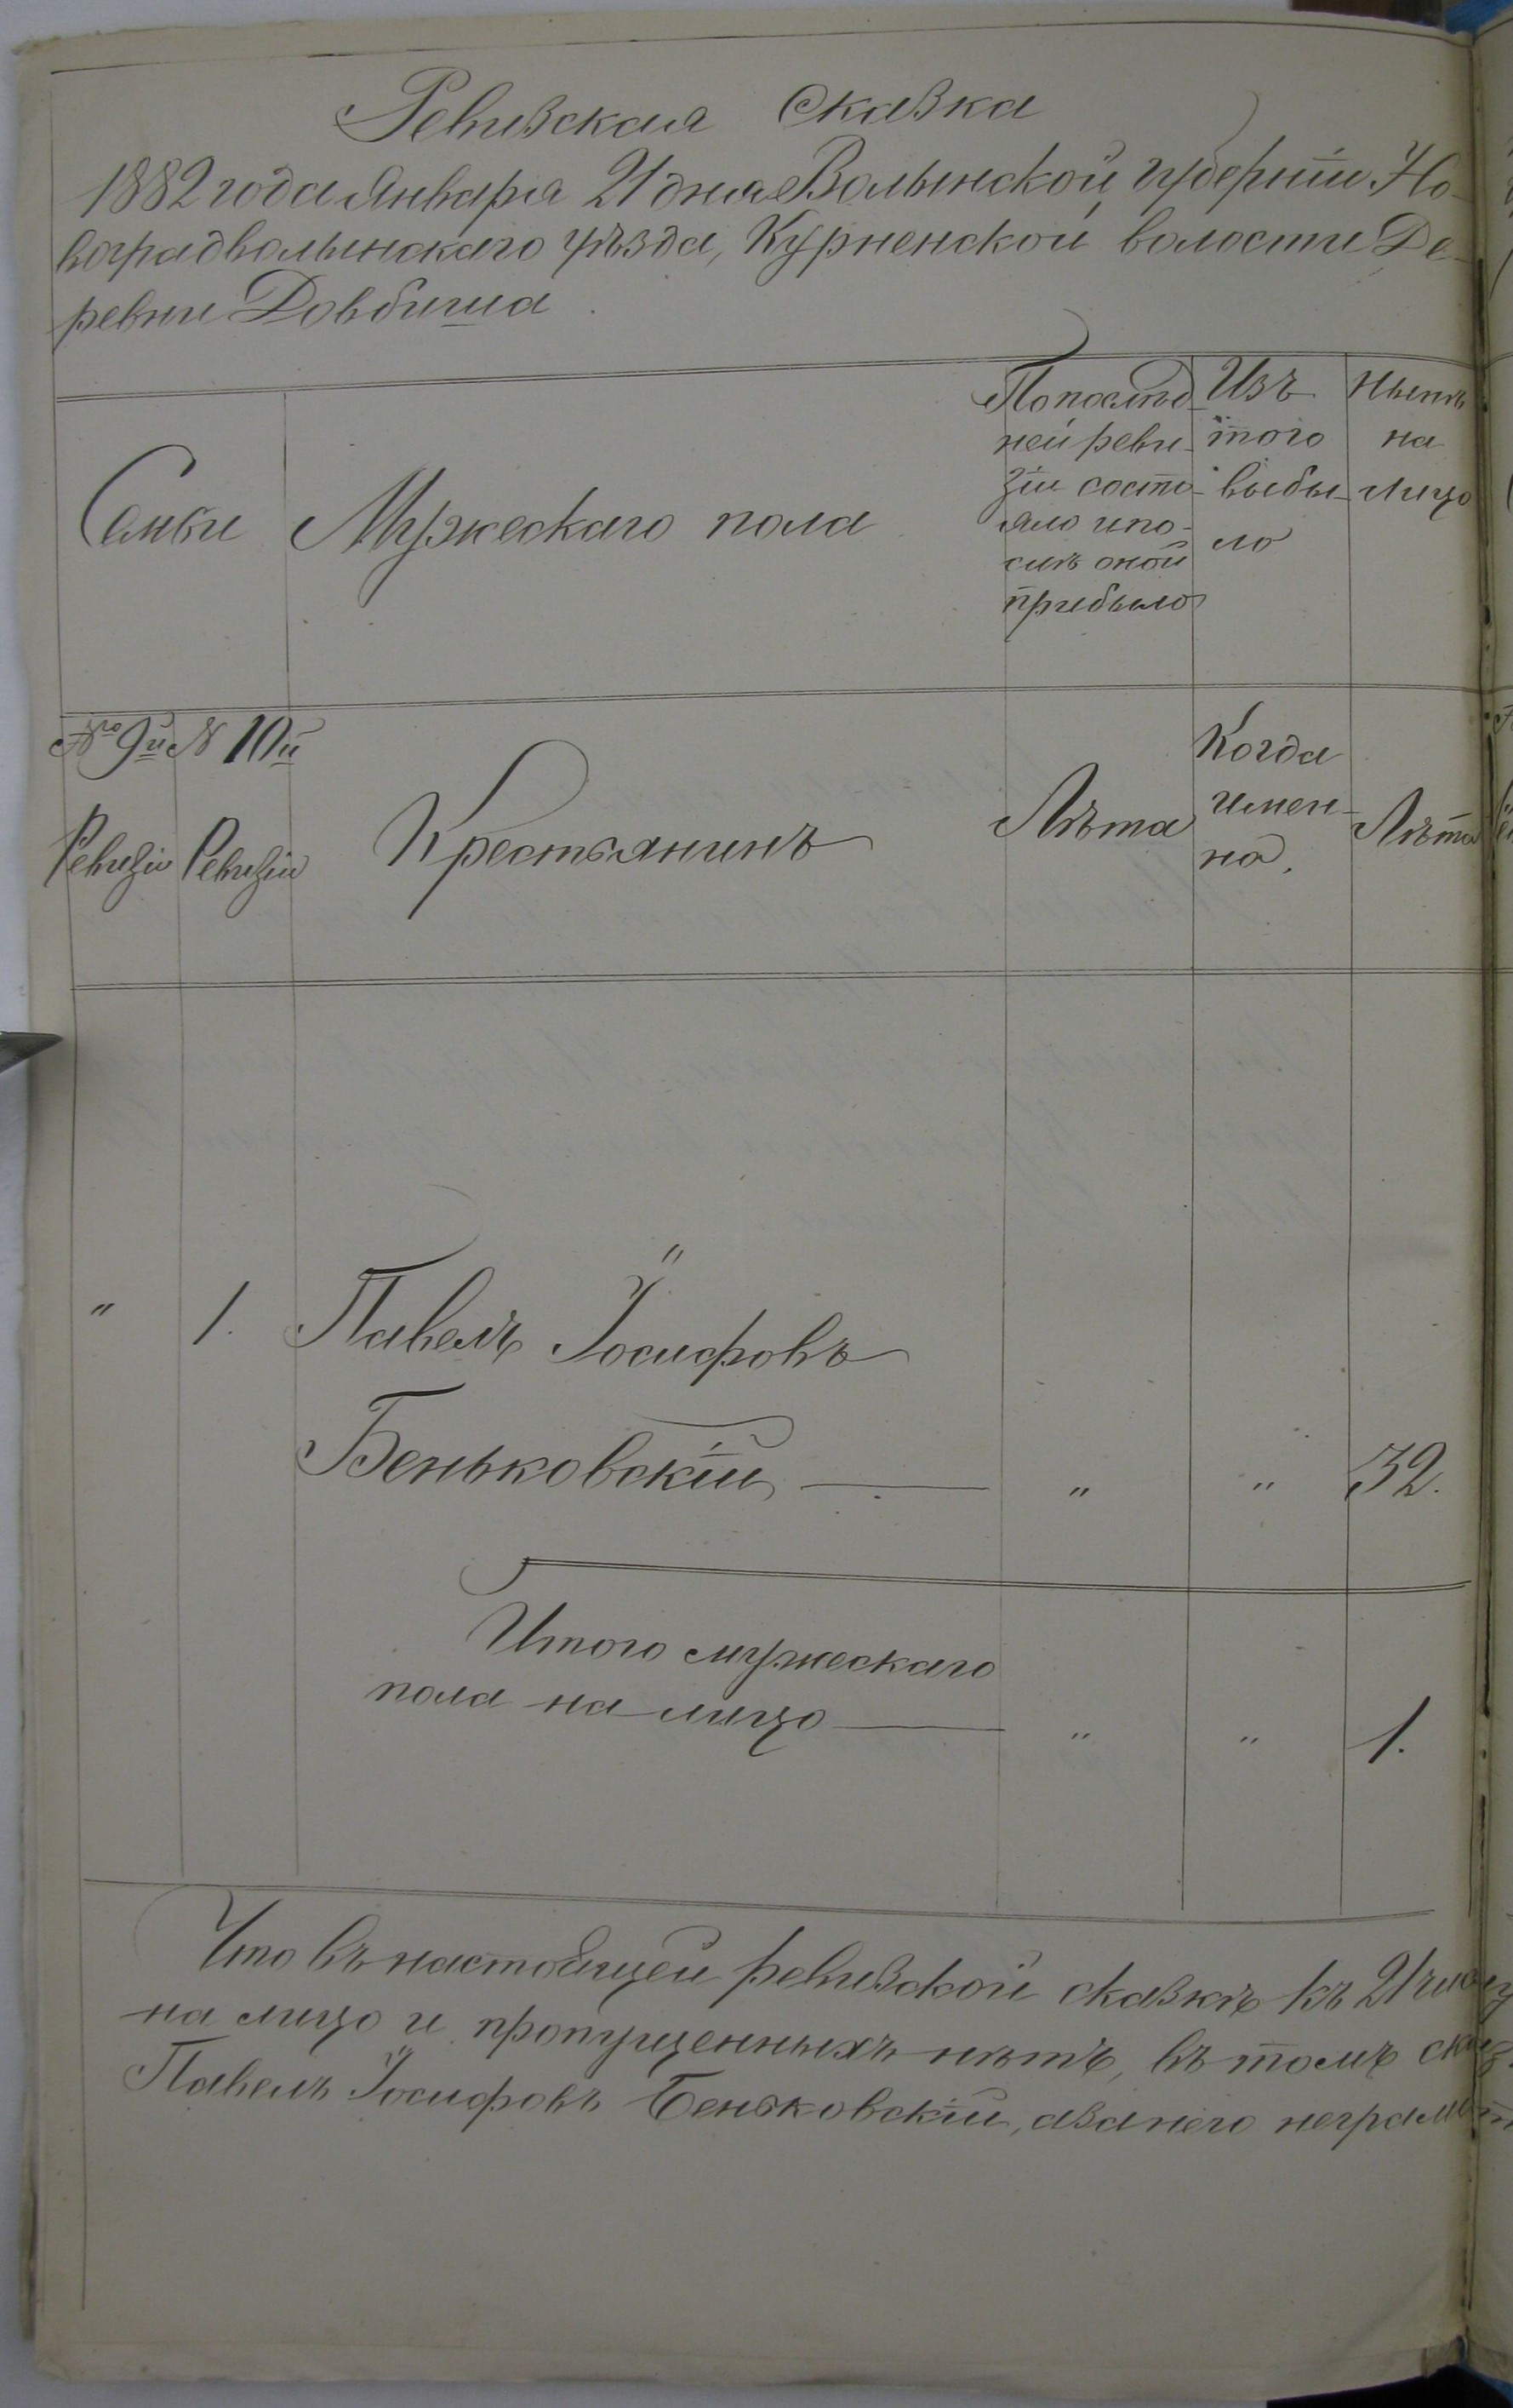 Ревизская Сказка
1882 года Января 21 дня Волынской губерніи Но-
воградволынскаго уѣзда, Курненской волости Де-
ревни Довбиша
Семьи
Мужескаго пола
По послѣд-
ней реви-
зіи состо-
яло и по-
слѣ оной
прибыло
Изъ
того
выбы-
ло
Нынѣ
на
лицо
№ 9й
Ревизіи
№ 10й
Ревизіи
Крестьянинъ
Лѣта
Когда
имен-
но.
Лѣта
" 1. Павелъ Іосифовъ
Беньковскій — " " 32.
Итого мужескаго
пола на лицо — " " 1.
Что въ настоящей ревизской сказкѣ къ 21 числу
на лицо и пропущенныхъ нѣтъ, въ томъ
Павелъ Іосифовъ Беньковскій, а за него